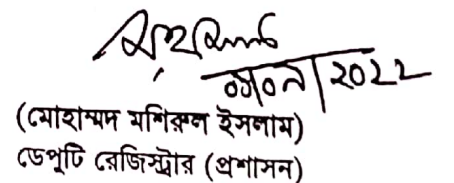 ০১/০৯/২০২২
(মোহাম্মদ মশিরুল ইসলাম)
ডেপুটি রেজিস্ট্রার (প্রশাসন)